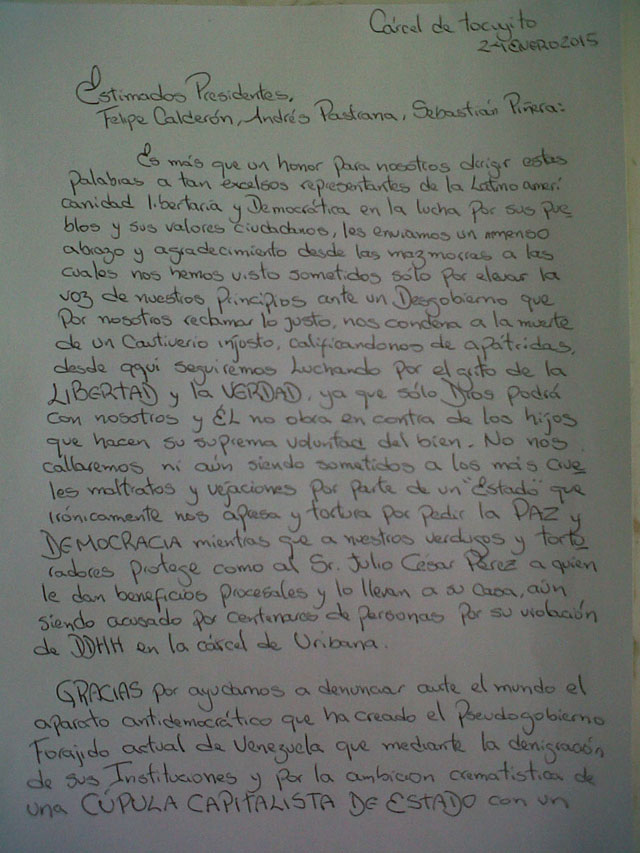 Cárcel de tocuyito
24ENERO2015
Estimados Presidentes,
Felipe Calderón, Andrés Pastrana, Sebastián Piñera:
Es más que un honor para nosotros dirigir estas
palabras a tan excelsos representantes de la Latino ameri
canidad libertaria y Democrática en la lucha por sus pue
blos y sus valores ciudadanos, les enviamos un inmenso
abrazo y agradecimiento desde las mazmorras a las
cuales nos hemos visto sometidos sólo por elevar la
voz de nuestros Principios ante un Desgobierno que
por nosotros reclamar lo justo, nos condena a la muerte
de un Cautiverio injusto, calificandonos de apátridas,
desde aqui seguiremos Luchando por el grito de la
LIBERTAD y la VERDAD, ya que sólo Dios podrá
con nosotros y ÉL no obra en contra de los hijos
que hacen su suprema voluntad del bien. No nos
callaremos ni aún siendo sometidos a los más crue
les maltratos y vejaciones por parte de un "Estado" que
irónicamente nos apresa y tortura por pedir la PAZ y
DEMOCRACIA mientras que a nuestros verdugos y tortu
radores protege como al Sr. Julio César Pérez a quien
le dan beneficios procesales y lo llevan a su casa, aún
siendo acusado por centenares de personas por su violación
de DDHH en la cárcel de Uribana.
GRACIAS por ayudarnos a denunciar ante el mundo el
aparato antidemocrático que ha creado el Pseudogobierno
Forajido actual de Venezuela que mediante la denigración
de sus Instituciones y por la ambicion crematistica de
una CÚPULA CAPITALISTA DE ESTADO con un